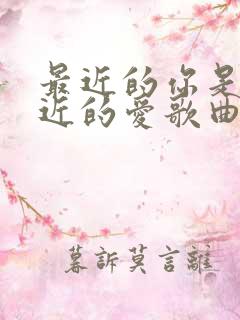 最近的你是
近的愛歌曲
暮訴莫言離